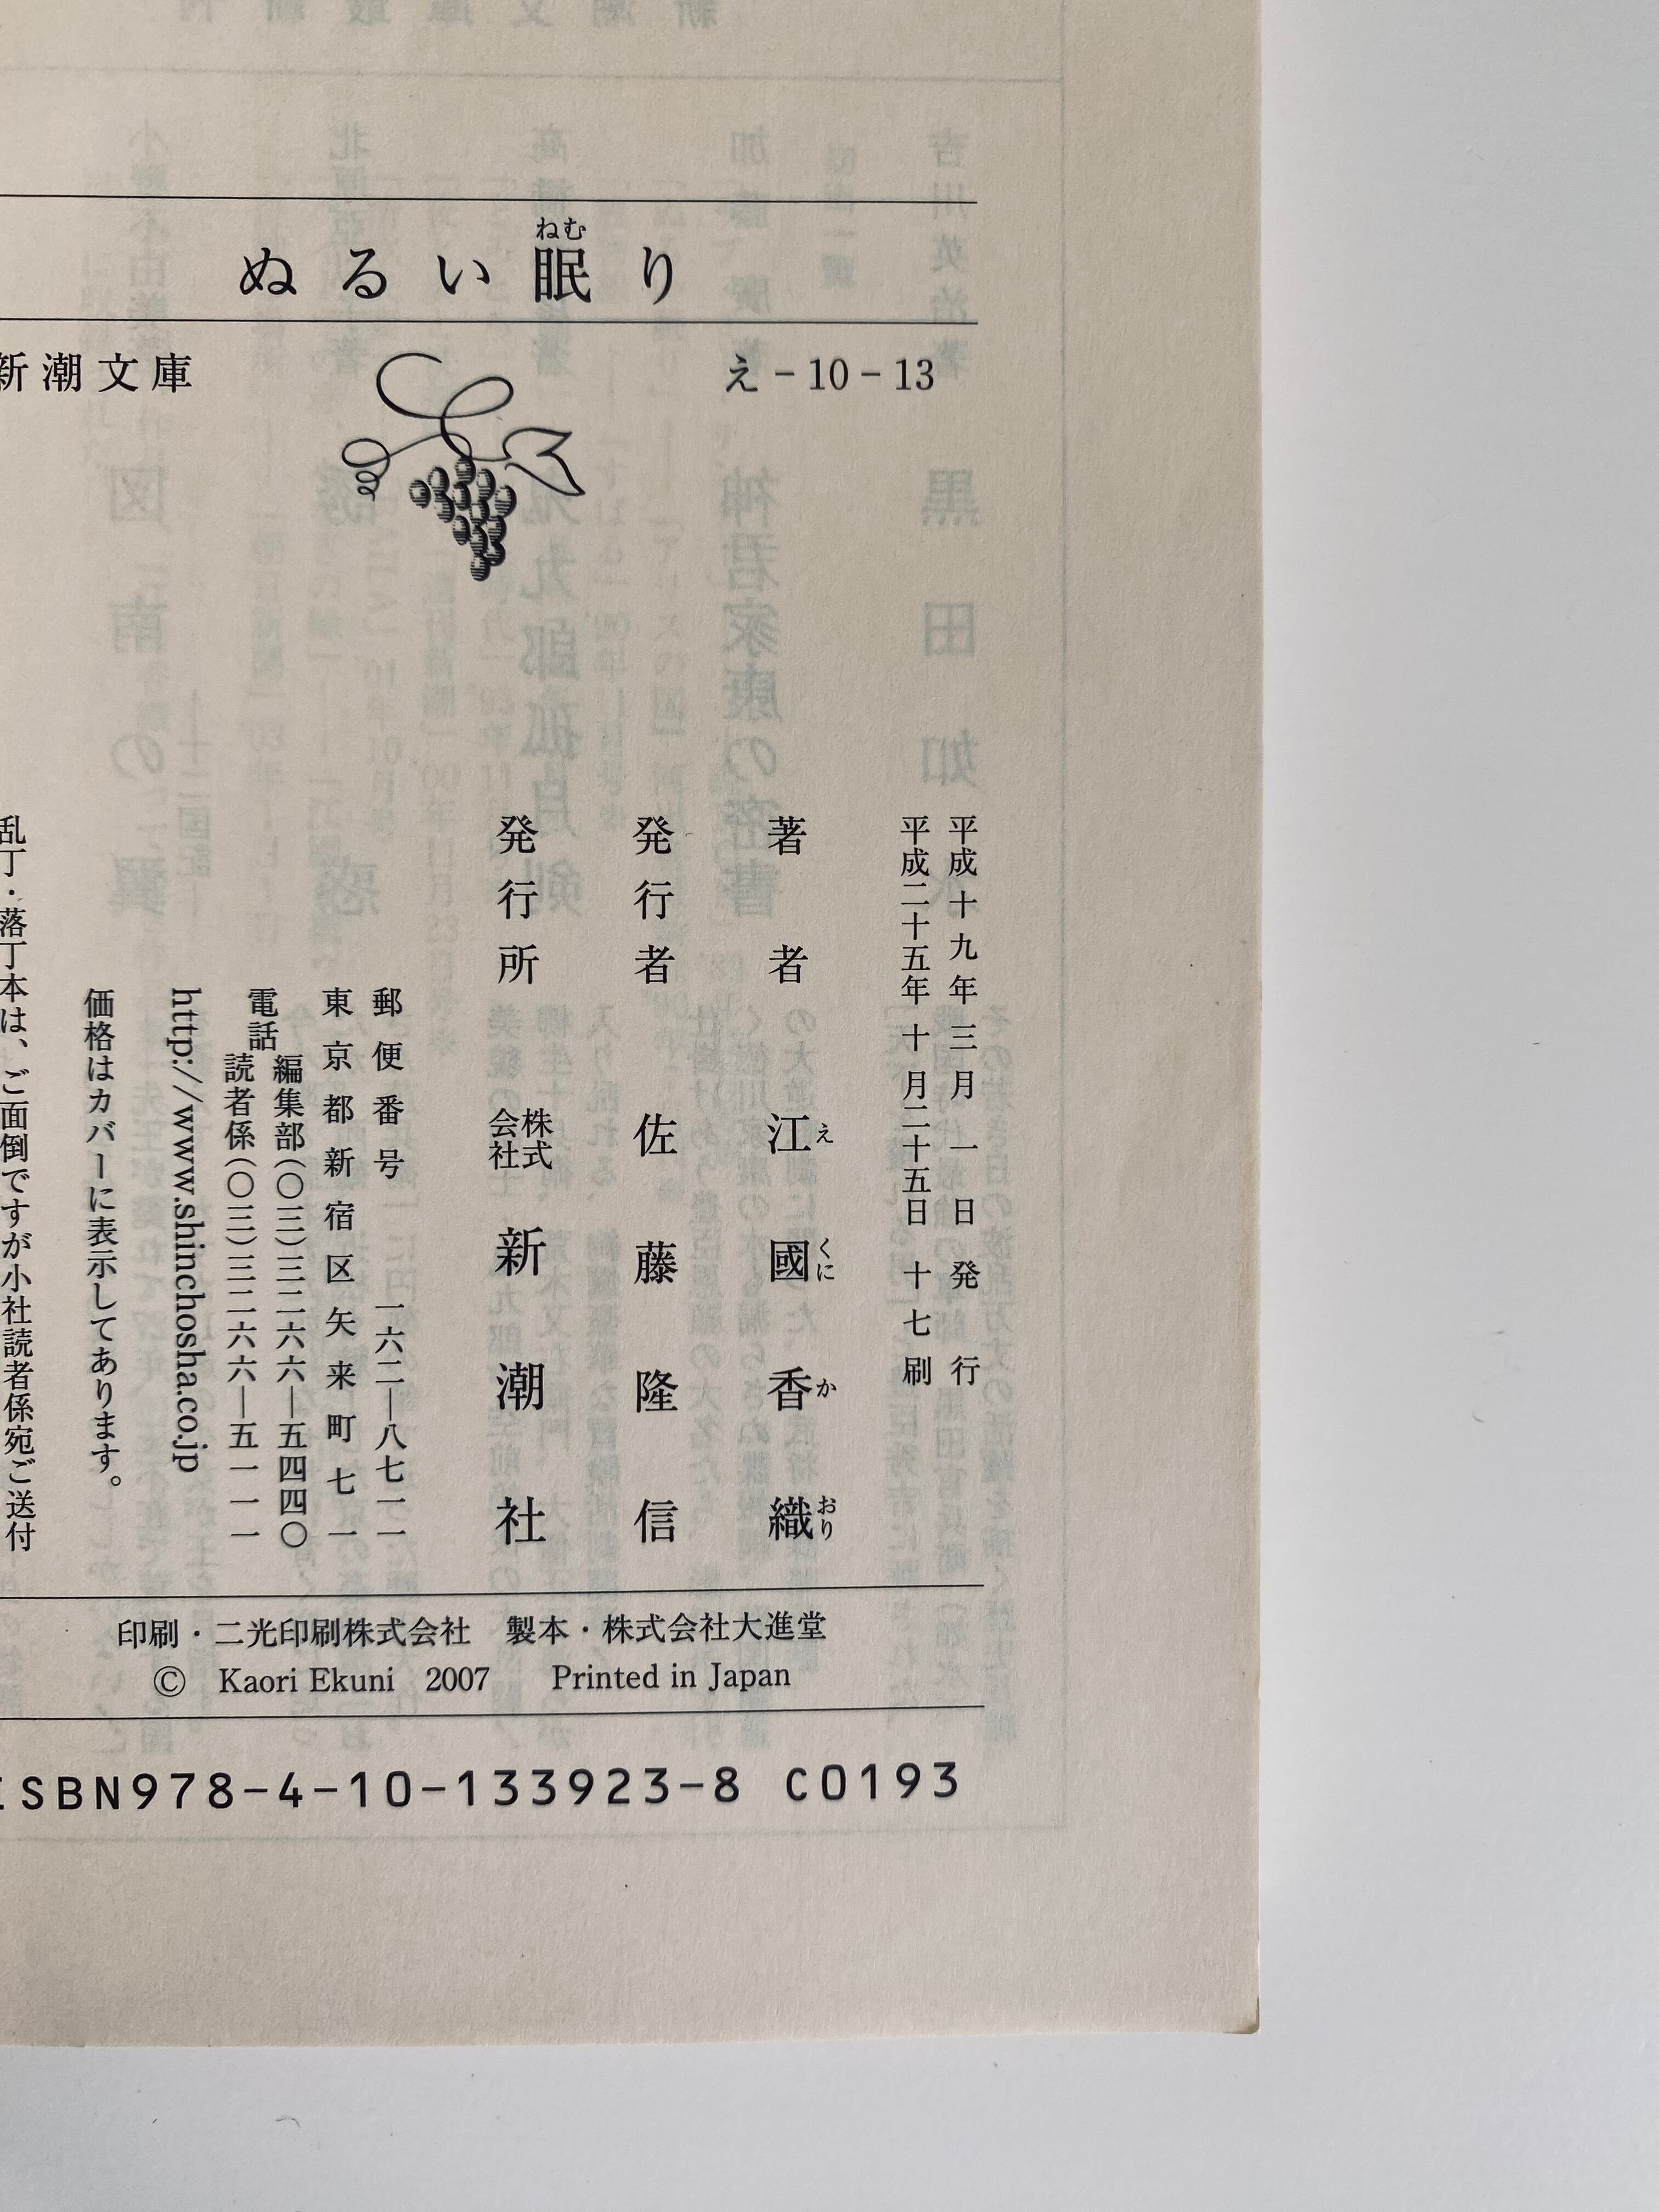 ぬるい眠り
ねむ
新潮文庫
え-10-13
平成十九年三月一日発行
平成二十五年十月二十五日十七刷
著者 江國香織
え くに か おり
発行者 佐藤隆信
発行所 株式会社 新潮社
郵便番号 一六二―八七一一
東京都新宿区矢来町七一
電話 編集部(〇三)三二六六―五四四〇
読者係(〇三)三二六六―五一一一
http://www.shinchosha.co.jp
価格はカバーに表示してあります。
乱丁・落丁本は、ご面倒ですが小社読者係宛ご送付
印刷・二光印刷株式会社 製本・株式会社大進堂
© Kaori Ekuni 2007 Printed in Japan
ISBN978-4-10-133923-8 C0193